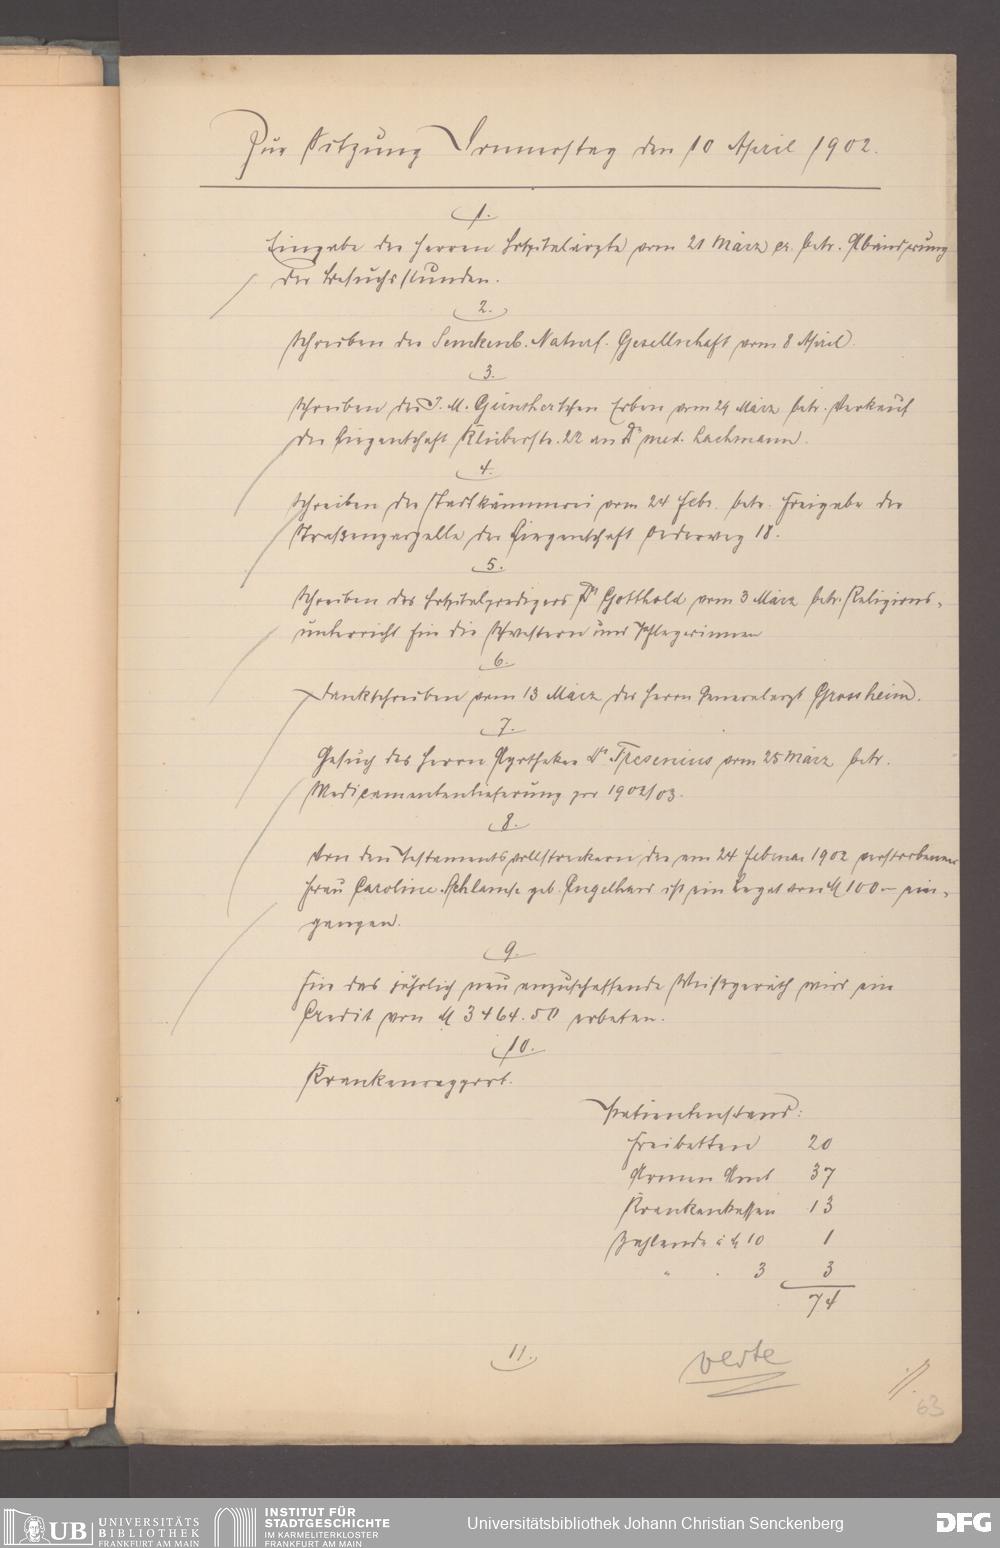 Zur Sitzung Donnerstag den 10 April 1902.
1.
Eingabe der Herren Hospitalärzte vom 21 März cr. betr. Abänderung
der Besuchsstunden.
2.
Schreiben der Senckenb. Naturf. Gesellschaft vom 8 April.
3.
Schreiben der J. M. Günsherschen Erben vom 29 März betr. Verkauf
der Liegenschaft Klüberstr. 22 an Dr med. Lachmann.
4.
Schreiben der Stadtkämmerei vom 24 Febr. betr. Freigabe der
Straßenparzelle der Liegenschaft Oederweg 18.
5.
Schreiben des Hospitalpredigers Dr Gotthold vom 3 März betr. Religions-
unterricht für die Schwestern und Pflegerinnen
6.
Dankschreiben vom 13 März des Herrn Generalarzt Grossheim.
7.
Gesuch des Herrn Apotheker Dr Fresenius vom 25 März betr.
Medicamentenlieferung per 1902/03.
8.
Von den Testamentsvollstreckern der am 24 Februar 1902 verstorbenen
Frau Caroline geb. Engelhard ist ein Legat von M 100.– ein-
gangen.
9.
Für das jährlich neu anzuschaffende Weißgeräth wird ein
Credit von M 3464.50 erbeten.
10.
Krankenrapport.
Patientenstand:
Freibetten 20
Armen Amt 37
Krankenkassen 13
Zahlende à M 10 1
" . 3 3
74
11.
verte
63
UB UNIVERSITÄTS BIBLIOTHEK FRANKFURT AM MAIN
INSTITUT FÜR STADTGESCHICHTE IM KARMELITERKLOSTER FRANKFURT AM MAIN
Universitätsbibliothek Johann Christian Senckenberg
DFG